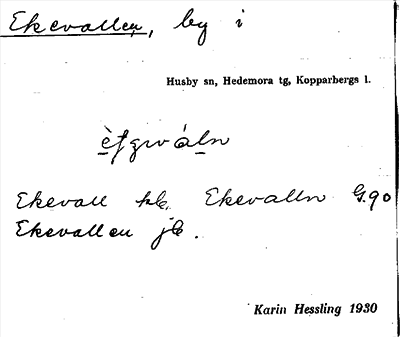 Ekevallen, by i
Husby sn, Hedemora tg, Kopparbergs l.
Ekevall hk. Ekevalln G.90
Ekevallen jb.
Karin Hessling 1930